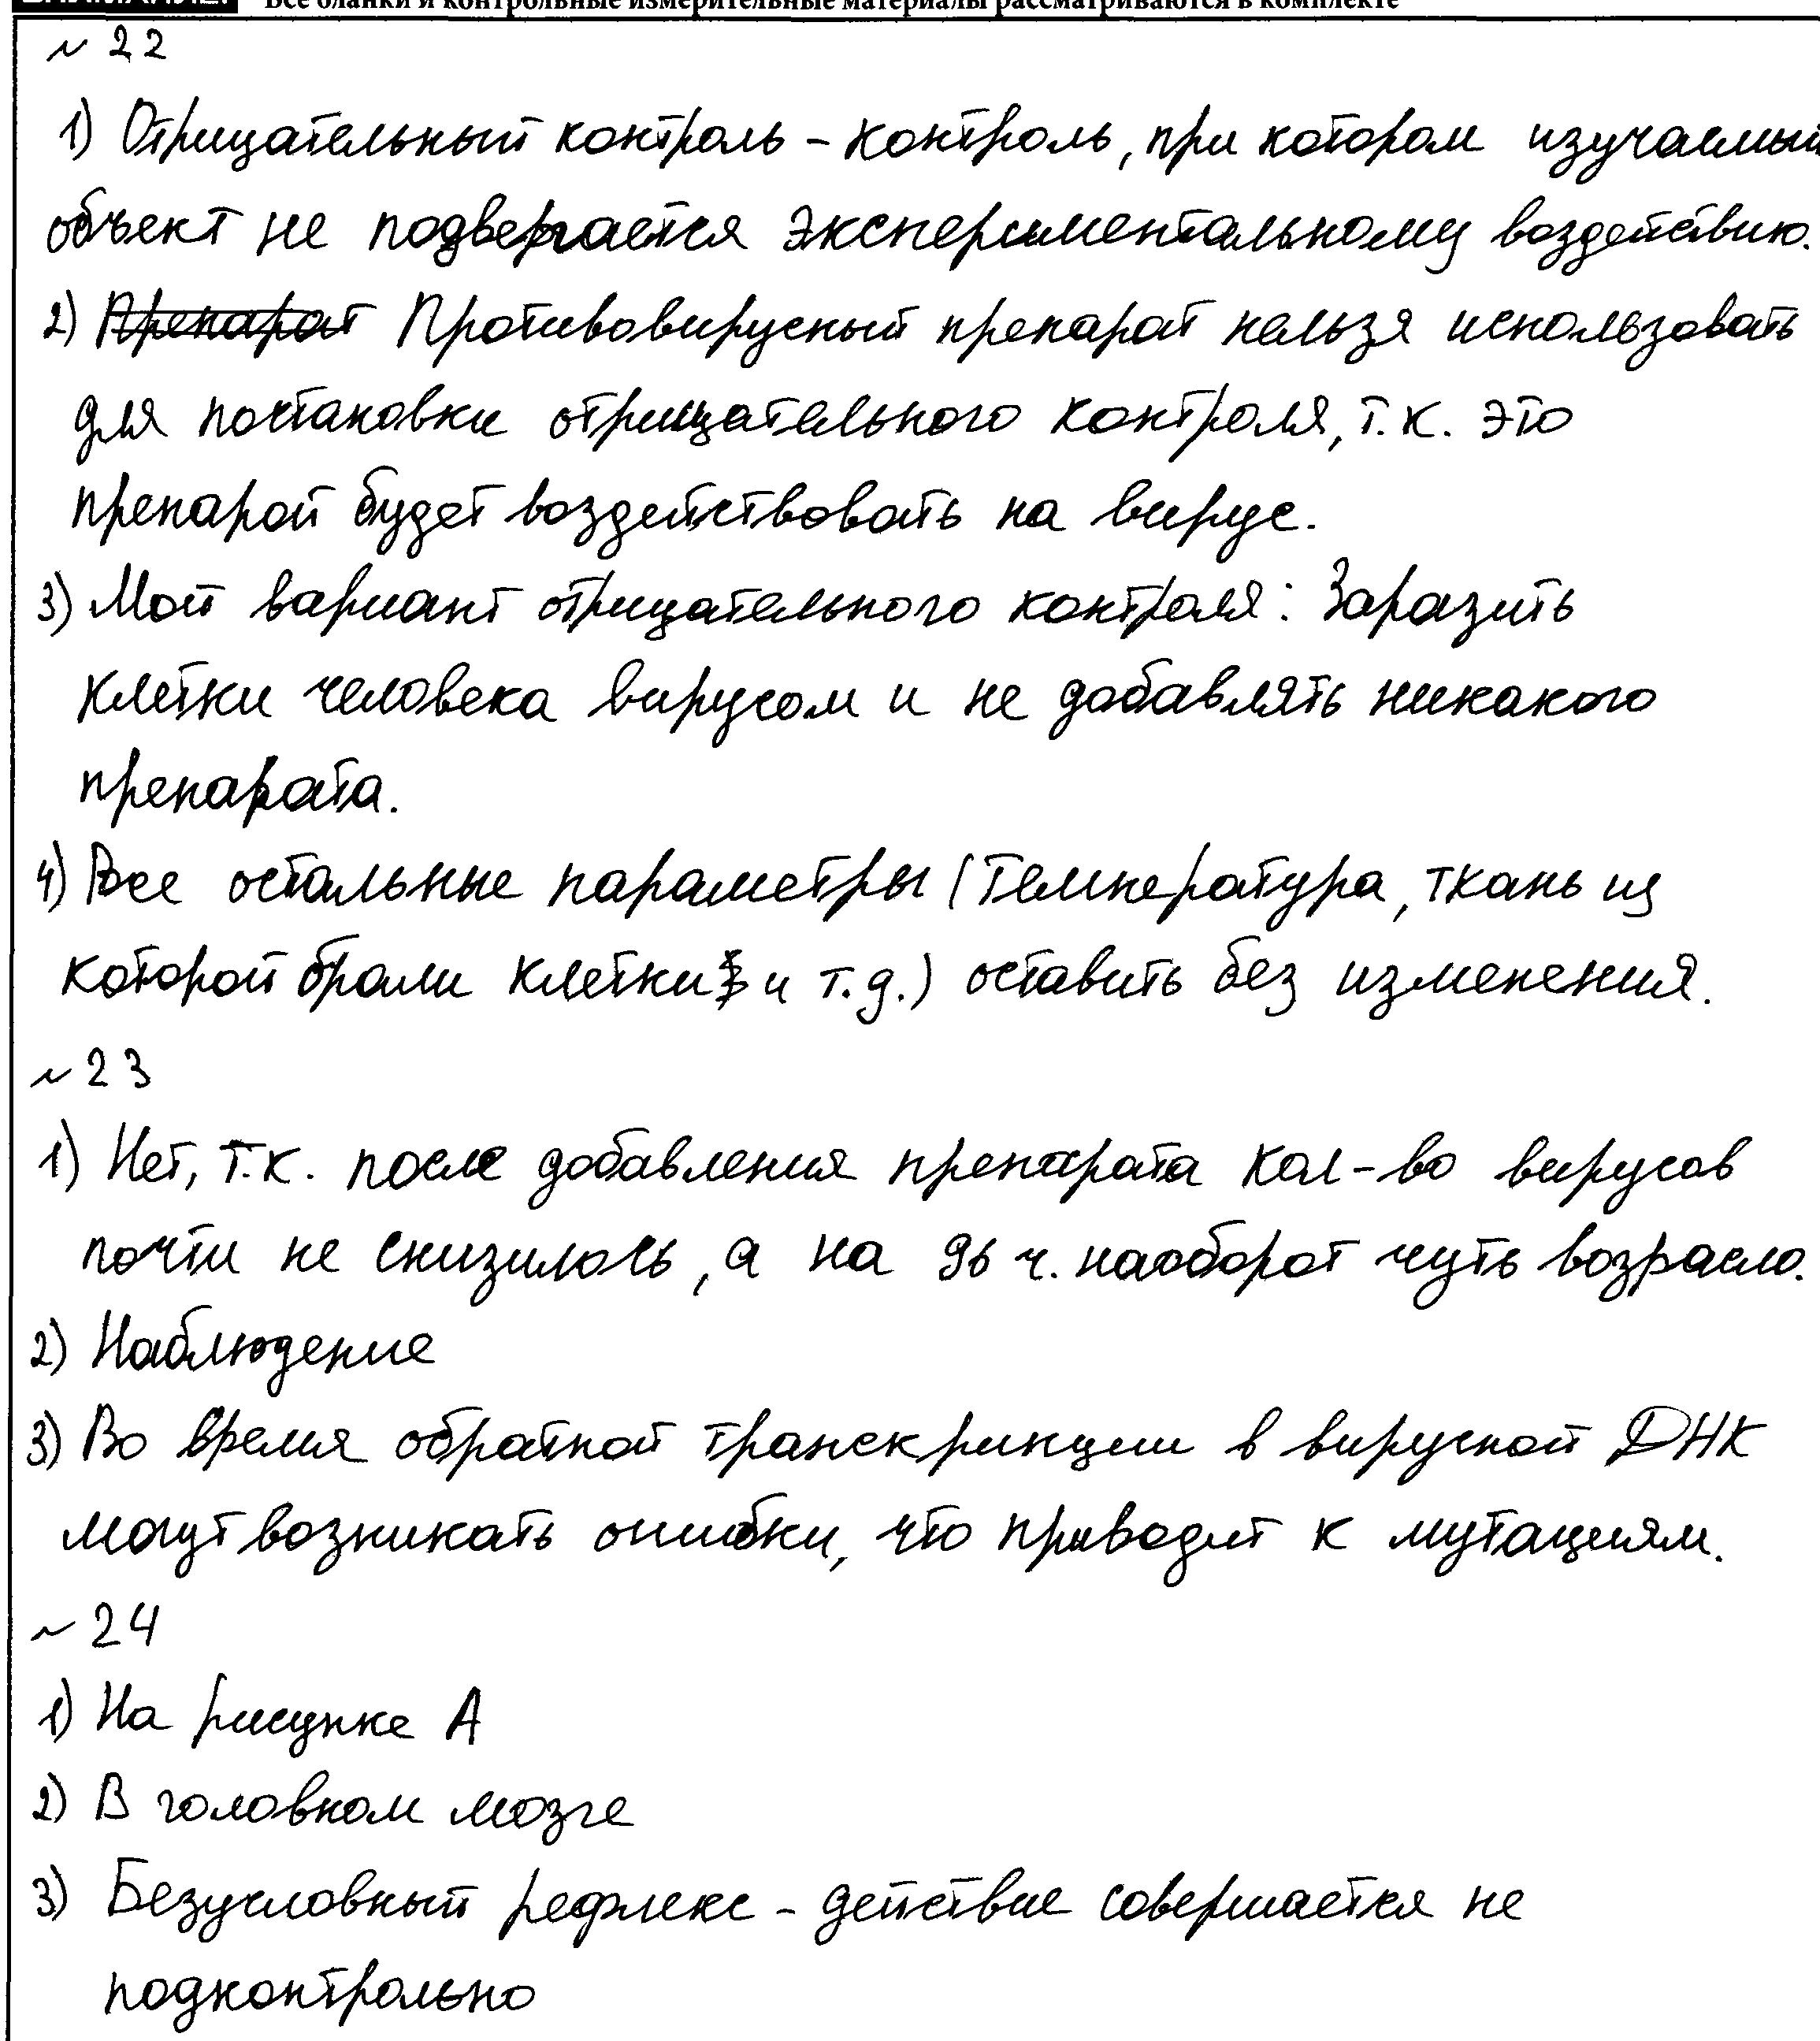 Все бланки и контрольные измерительные материалы рассматриваются в комплекте
№ 22
1) Отрицательный контроль – контроль, при котором изучаемый
объект не подвергается экспериментальному воздействию.
2) Препарат Противовирусный препарат нельзя использовать
для постановки отрицательного контроля, т.к. это
препарат будет воздействовать на вирус.
3) Мой вариант отрицательного контроля: Заразить
клетки человека вирусом и не добавлять никакого
препарата.
4) Все остальные параметры (температура, ткань из
которой брали клетки и т.д.) оставить без изменения.
№ 23
1) Нет, т.к. после добавления препарата кол-во вирусов
почти не снизилось, а на 96 ч. наоборот чуть возрасло.
2) Наблюдение
3) Во время обратной транскрипции в вирусной ДНК
могут возникать ошибки, что приводит к мутациям.
№ 24
1) На рисунке А
2) В головном мозге
3) Безусловный рефлекс – действие совершается не
подконтрольно